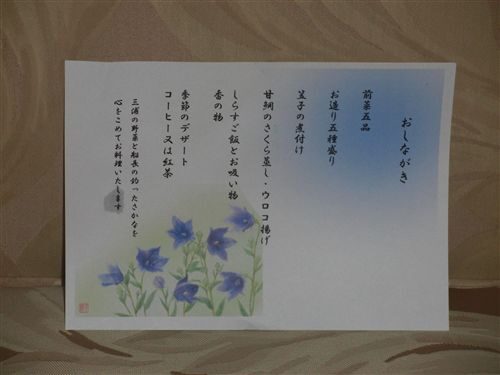 おしながき
前菜五品
お造り五種盛り
笠子の煮付け
甘鯛のさくら蒸し・ウロコ揚げ
しらすご飯とお吸い物
香の物
季節のデザート
コーヒー又は紅茶
三浦の野菜と船長の釣ったさかなを
心をこめてお料理いたします